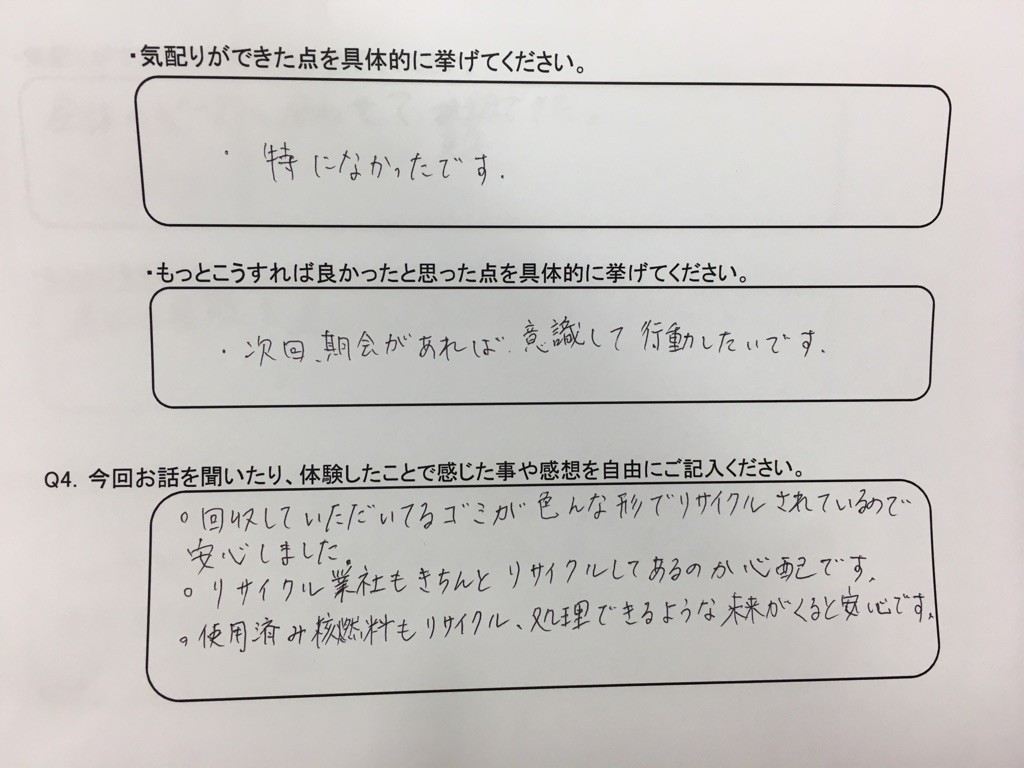 ・気配りができた点を具体的に挙げてください。
・特になかったです.
・もっとこうすれば良かったと思った点を具体的に挙げてください。
・次回、期会があれば、意識して行動したいです.
Q4. 今回お話を聞いたり、体験したことで感じた事や感想を自由にご記入ください。
○回収していただいてるゴミが色んな形でリサイクルされているので
安心しました。
○リサイクル業社もきちんとリサイクルしてあるのか心配です.
○使用済み核燃料もリサイクル、処理できるような未来がくると安心です.